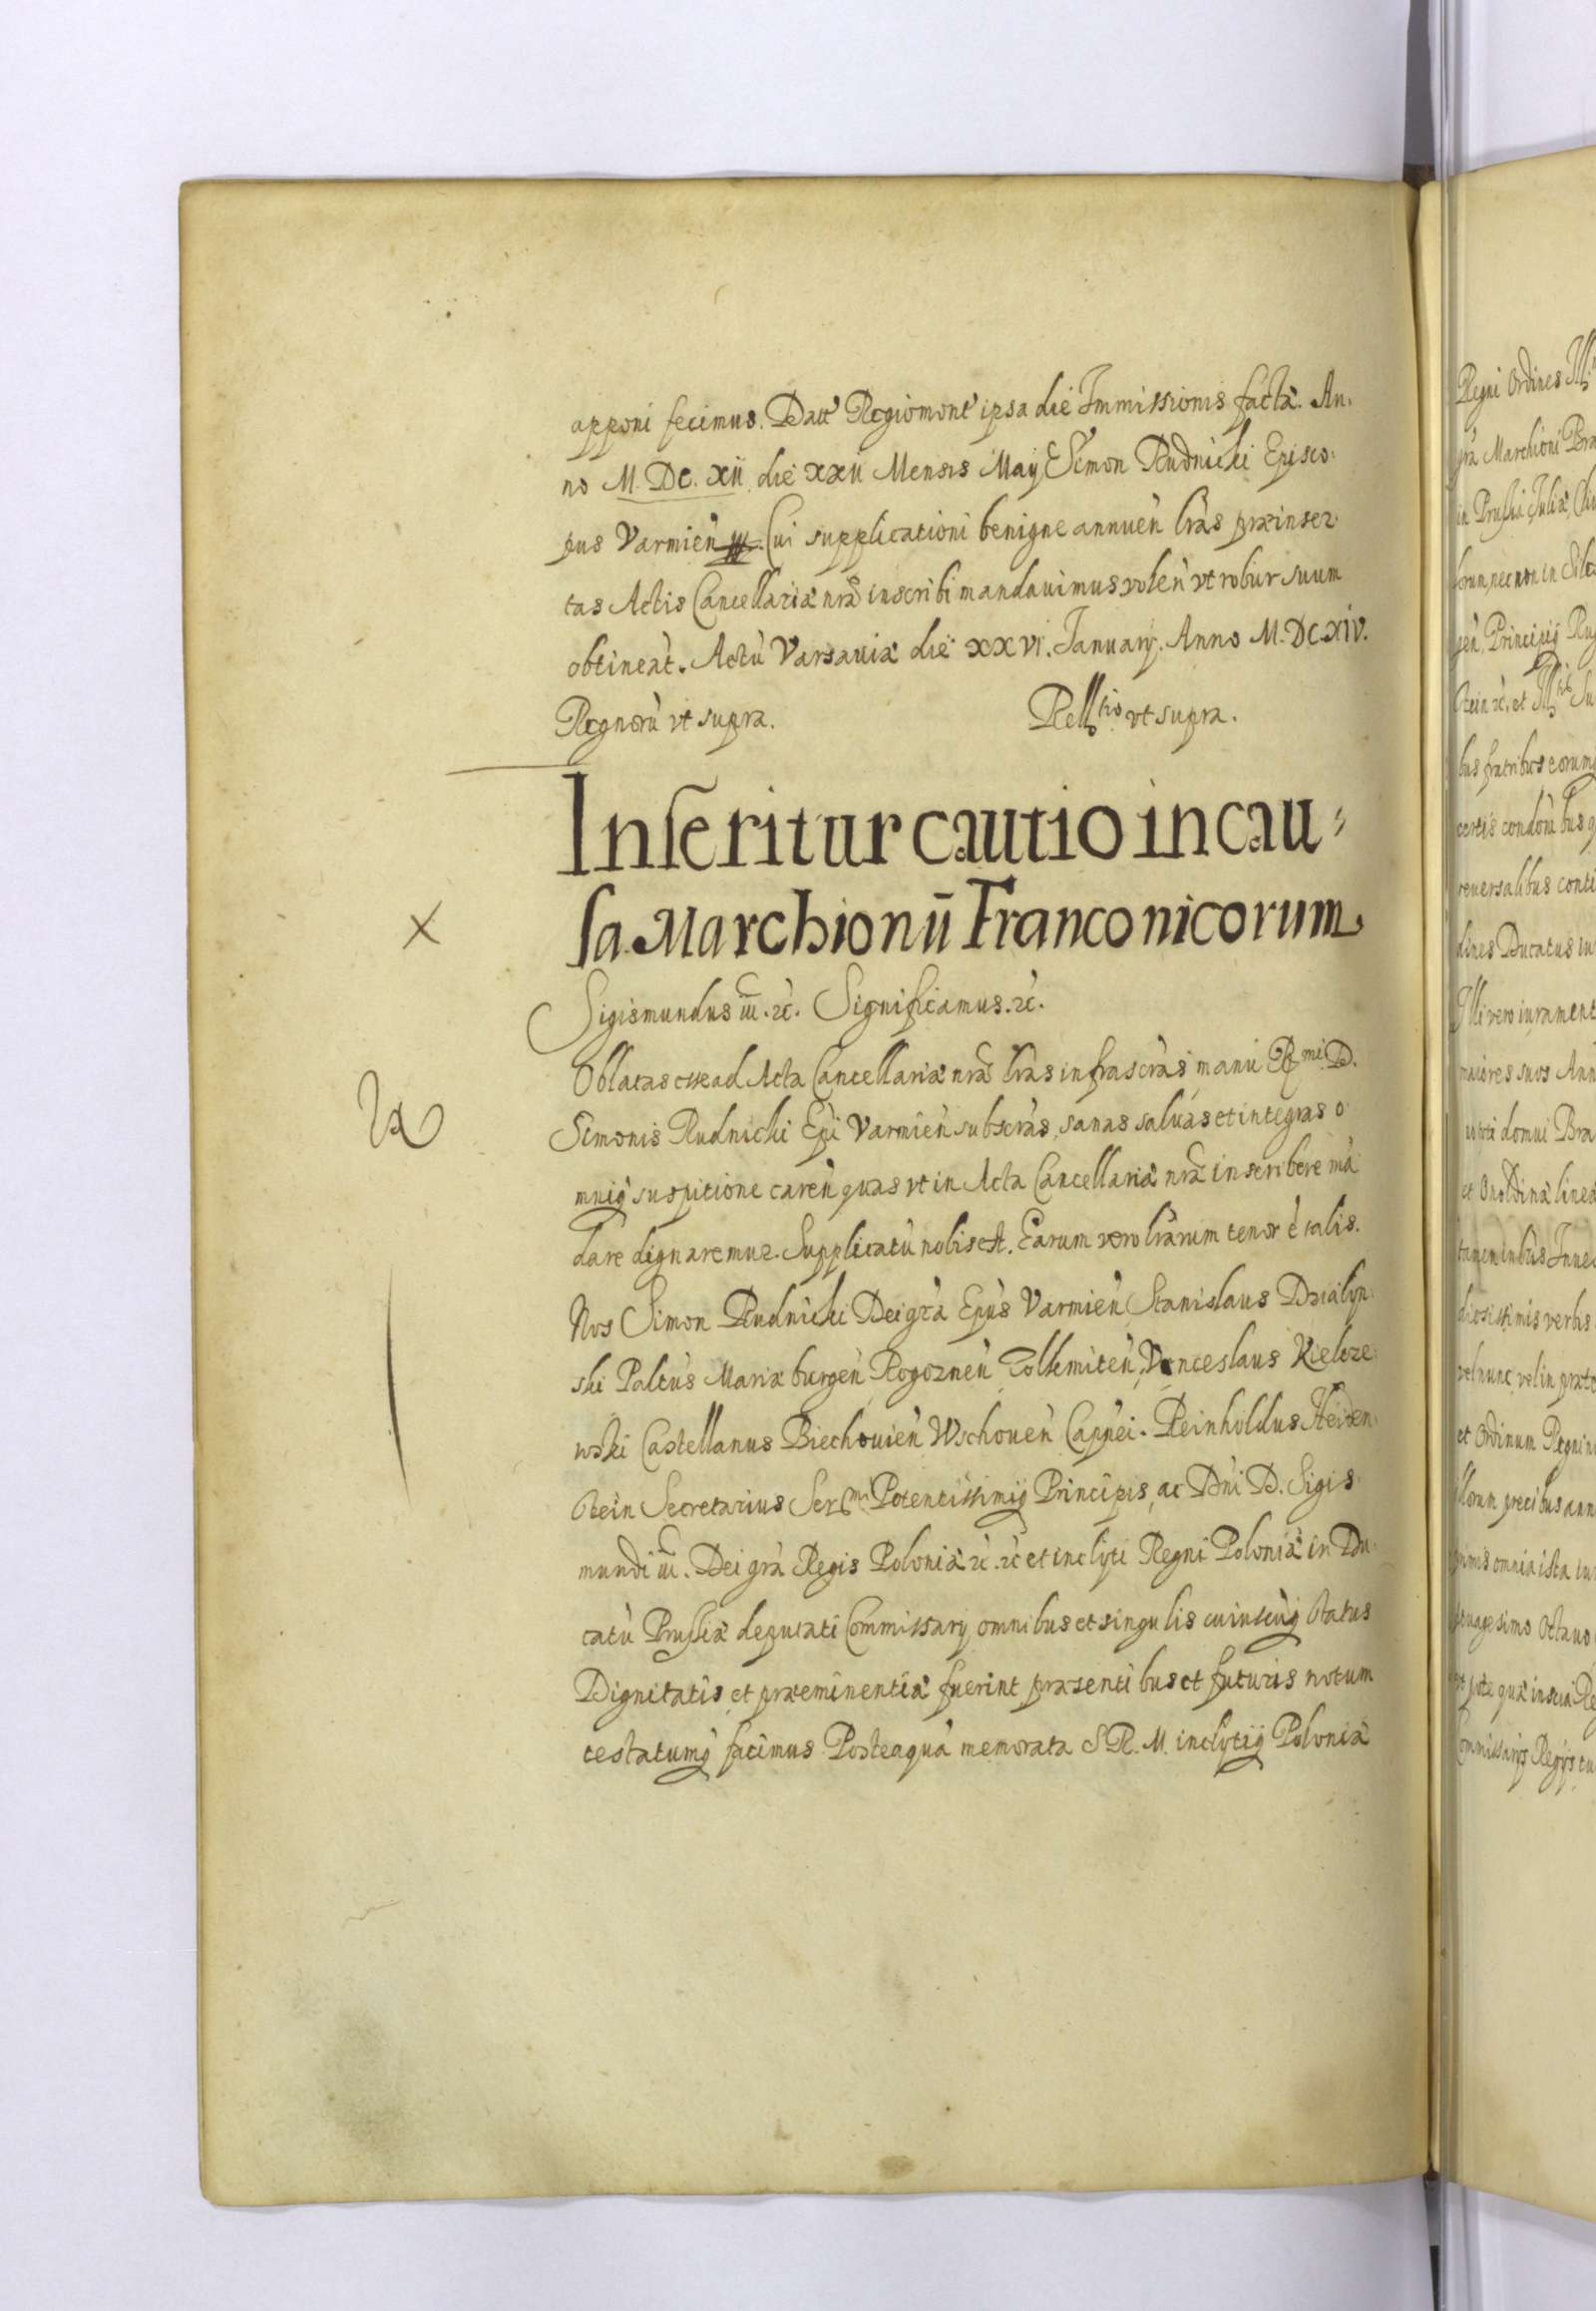 apponi fecimus. Datt Regiomont ipsa die Immissionis facta. An.
no M. DC. xii die xxii Mensis Maij Simon Rudnicki Episco.
pus Varmien̄ Cui supplicationi benigne annuen̄ lr̄as præinser.
tas Actis Cancellariæ nr̄æ inscribi mandauimus volen̄ vt robur suum
obtineāt. Actū Varsauiæ die XXVI. Januarij. Anno M. DC. XIV.
Regnorū vt supra. Rell^tio vt supra.
Inſeritur cautio in cau⸗
ſa Marchionū Franconicorum
Sigismundus iii. &c. Significamus. &c.
Oblatas esse ad Acta Cancellariæ nr̄æ lr̄as infrascr̄as manu R^mi D.
Simonis Rudnicki Ep̄i Varmien̄ subscr̄as, sanas saluas et integras o
mniq̄ suspitione caren̄ quas vt in Acta Cancellariæ nr̄æ inscribere mā
dare dignaremur. Supplicatū nobis est. Earum vero lr̄arum tenor ē talis.
Nos Simon Rudnicki Dei gr̄a Ep̄us Varmien̄ Stanislaus Dzialyn
ski Palt̄us Mariæburgen̄ Rogoznen̄ Tolkemiten̄, Venceslaus Kielcze
wski Castellanus Biechouien̄ Wschouen̄ Cappei. Reinholdus Heiden
stein Secretarius Ser^mi Potentissimiq̄ Principis, ac Dn̄i D. Sigis
mundi iii. Dei gr̄a Regis Poloniæ &c. &c et inclyti Regni Poloniæ in Du
catū Prussiæ deputati Commissarij omnibus et singulis cuiuscūq̄ status
Dignitatis, et præeminentiæ fuerint præsentibus et futuris notum
testatumq̄ facimus Posteaquā memorata S. R. M. inclytiq̄ Poloniæ
Regni Ordines
gr̄a Marchioni
in Prussia Juliæ
necnon in
Principij
et
bus fratribus
certis
reuersalibus
Ducatus
Illi vero
maiores suos
domui
et Onoldinā
verbis
vel nunc vel in
et Ordinum Regni
precibus
omnia ista
Octauo
Commissarijs Regijs